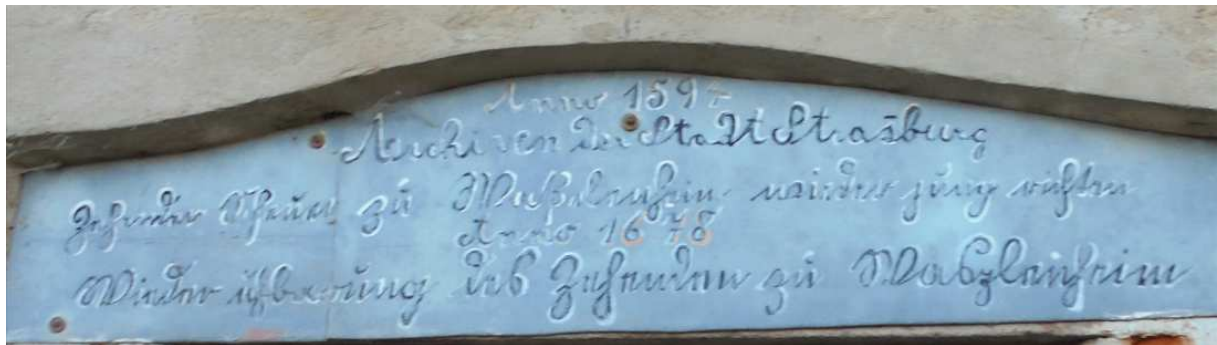 Anno 1597
Archiven der Stadt Strasburg
Zehender Scheuer zu Waßelenheim wieder zung richten
Anno 1678
Wieder ufbauung des Zehenden zu Waszlenheim